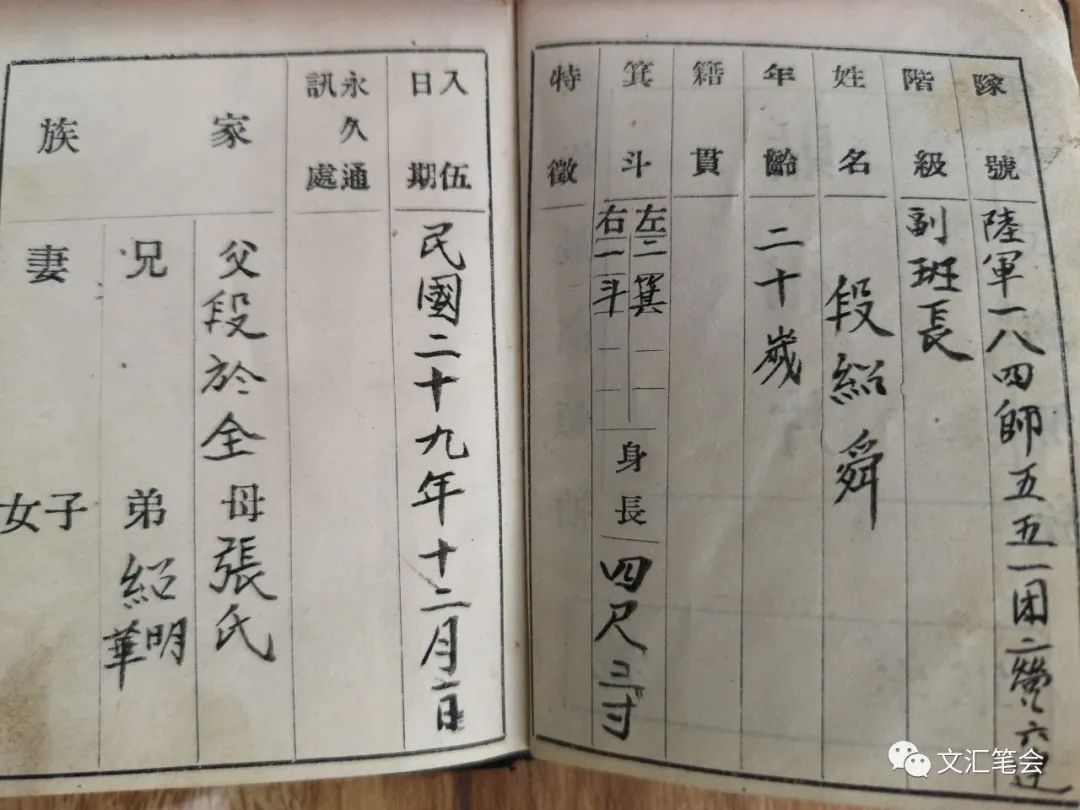 隊號 陸軍一八四師五五一团二營六連
階級 副班長
姓名 段紹舜
年齡 二十歲
籍貫
箕斗 左二箕 右一斗 身長 四尺三寸
特徵
入伍日期 民國二十九年十二月一日
永久通訊處
家族
父段於全 母張氏
兄 弟紹明華
妻 子女
文汇笔会